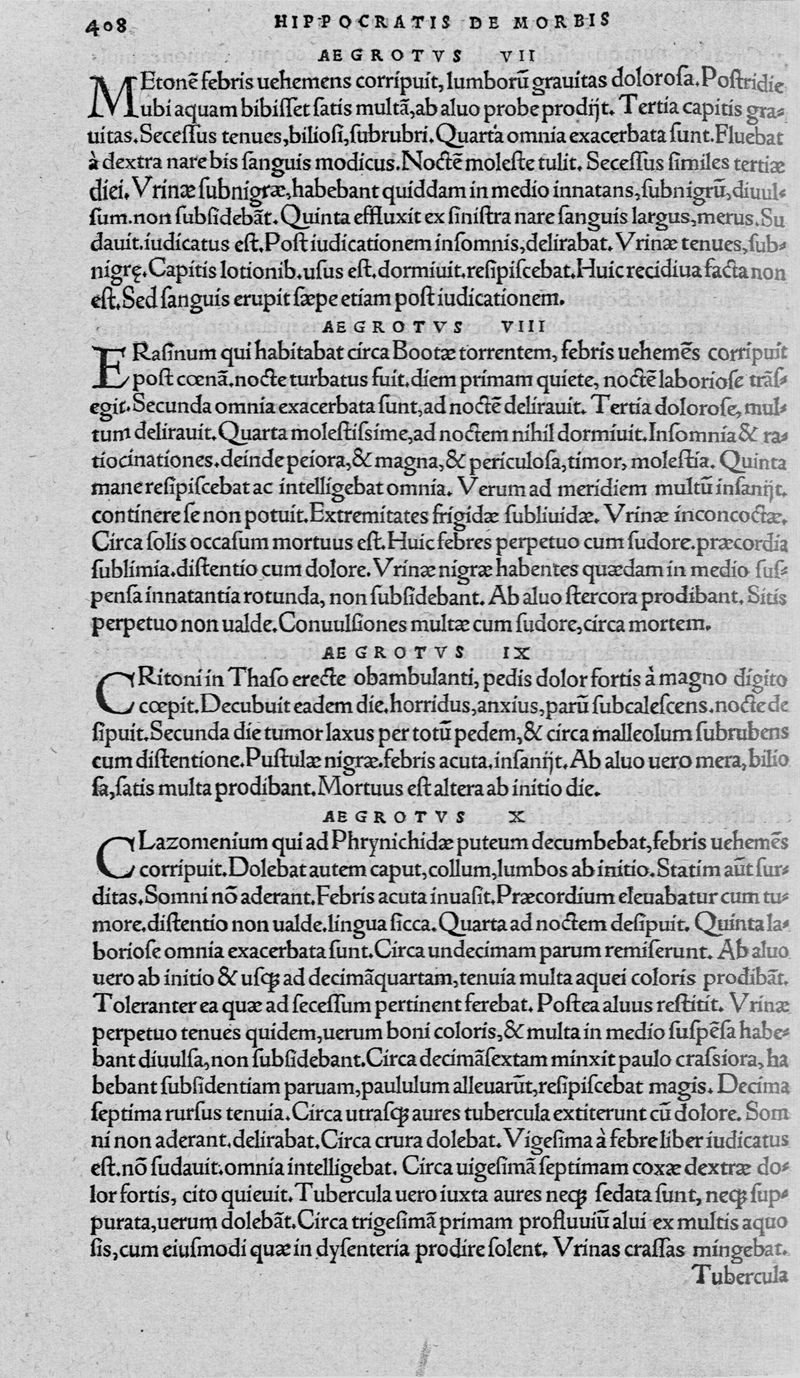 408 HIPPOCRATIS DE MORBIS
AEGROTVS VII
MEtonē febris uehemens corripuit, lumborū grauitas doloroſa. Poſtridie
ubi aquam bibiſſet ſatis multā, ab aluo probe prodijt. Tertia capitis gra-
uitas. Seceſſus tenues, bilioſi, ſubrubri. Quarta omnia exacerbata ſunt. Fluebat
à dextra nare bis ſanguis modicus. Noctē moleſte tulit. Seceſſus ſimiles tertiæ
diei. Vrinæ ſubnigræ, habebant quiddam in medio innatans, ſubnigrū, diuul-
ſum. non ſubſidebāt. Quinta effluxit ex ſiniſtra nare ſanguis largus, merus. Su
dauit. iudicatus eſt. Poſt iudicationem inſomnis, delirabat. Vrinæ tenues, ſub-
nigrę. Capitis lotionib. uſus eſt. dormiuit. reſipiſcebat. Huic recidiua facta non
eſt. Sed ſanguis erupit ſæpe etiam poſt iudicationem.
AEGROTVS VIII
ERaſinum qui habitabat circa Bootæ torrentem, febris uehemēs corripuit
poſt cœnā. nocte turbatus fuit. diem primam quiete, noctē laborioſe trāſ-
egit. Secunda omnia exacerbata ſunt, ad noctē delirauit. Tertia doloroſe, mul-
tum delirauit. Quarta moleſtiſsime, ad noctem nihil dormiuit. Inſomnia & ra-
tiocinationes. deinde peiora, & magna, & periculoſa, timor, moleſtia. Quinta
mane reſipiſcebat ac intelligebat omnia. Verum ad meridiem multū inſanijt.
continere ſe non potuit. Extremitates frigidæ ſubliuidæ. Vrinæ inconcoctæ.
Circa ſolis occaſum mortuus eſt. Huic febres perpetuo cum ſudore. præcordia
ſublimia. diſtentio cum dolore. Vrinæ nigræ habentes quædam in medio ſuſ-
penſa innatantia rotunda, non ſubſidebant. Ab aluo ſtercora prodibant. Sitis
perpetuo non ualde. Conuulſiones multæ cum ſudore, circa mortem.
AEGROTVS IX
CRitoni in Thaſo erecte obambulanti, pedis dolor fortis à magno digito
cœpit. Decubuit eadem die. horridus, anxius, parū ſubcaleſcens. nocte de
ſipuit. Secunda die tumor laxus per totū pedem, & circa malleolum ſubrubens
cum diſtentione. Puſtulæ nigræ. febris acuta. inſanijt. Ab aluo uero mera, bilio
ſa, ſatis multa prodibant. Mortuus eſt altera ab initio die.
AEGROTVS X
CLazomenium qui ad Phrynichidæ puteum decumbebat, febris uehemēs
corripuit. Dolebat autem caput, collum, lumbos ab initio. Statim aūt ſur-
ditas. Somni nō aderant. Febris acuta inuaſit. Præcordium eleuabatur cum tu-
more. diſtentio non ualde. lingua ſicca. Quarta ad noctem deſipuit. Quinta la-
borioſe omnia exacerbata ſunt. Circa undecimam parum remiſerunt. Ab aluo
uero ab initio & uſqꝫ ad decimāquartam, tenuia multa aquei coloris prodibāt.
Toleranter ea quæ ad ſeceſſum pertinent ferebat. Poſtea aluus reſtitit. Vrinæ
perpetuo tenues quidem, uerum boni coloris, & multa in medio ſuſpēſa habe-
bant diuulſa, non ſubſidebant. Circa decimāſextam minxit paulo craſsiora, ha
bebant ſubſidentiam paruam, paululum alleuarūt, reſipiſcebat magis. Decima
ſeptima rurſus tenuia. Circa utraſqꝫ aures tubercula extiterunt cū dolore. Som
ni non aderant. delirabat. Circa crura dolebat. Vigeſima à febre liber iudicatus
eſt. nō ſudauit. omnia intelligebat. Circa uigeſimā ſeptimam coxæ dextræ do-
lor fortis, cito quieuit. Tubercula uero iuxta aures neqꝫ ſedata ſunt, neqꝫ ſup-
purata, uerum dolebāt. Circa trigeſimā primam profluuiū alui ex multis aquo
ſis, cum eiuſmodi quæ in dyſenteria prodire ſolent. Vrinas craſſas mingebat.
Tubercula